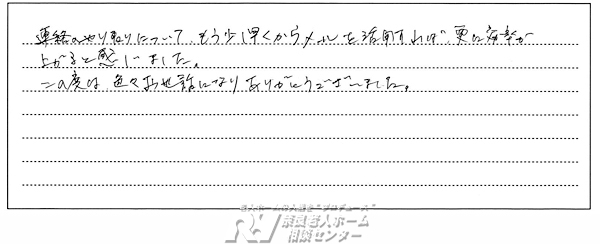 連絡のやり取りについて、もう少し早くからメールを活用すれば、更に効率が
上がると感じました。
この度は色々お世話になりありがとうございました。
老人ホームの人選を"プロデュース"
奈良老人ホーム
相談センター